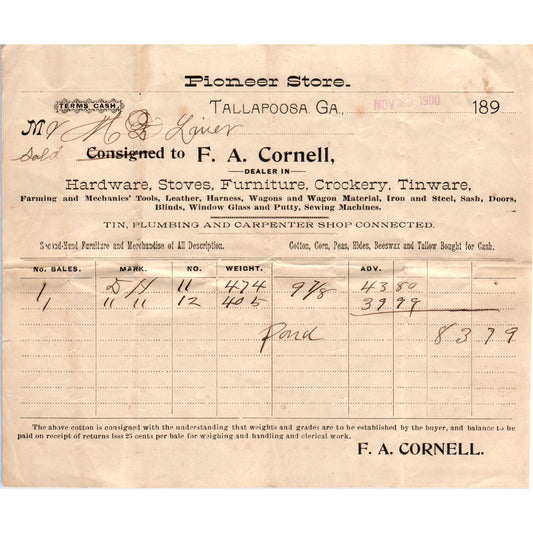 Pioneer Store.
TERMS CASH.
TALLAPOOSA, GA., NOV 1900 189
Mr
Sold Consigned to F. A. Cornell,
DEALER IN
Hardware, Stoves, Furniture, Crockery, Tinware,
Farming and Mechanics' Tools, Leather, Harness, Wagons and Wagon Material, Iron and Steel, Sash, Doors,
Blinds, Window Glass and Putty, Sewing Machines.
TIN, PLUMBING AND CARPENTER SHOP CONNECTED.
Second-Hand Furniture and Merchandise of All Description. Cotton, Corn, Peas, Hides, Beeswax and Tallow Bought for Cash.
No. BALES. MARK. NO. WEIGHT. ADV.
1 11 474 9 7/8 43 80
1 " " 12 405 39 99
83 79
The above cotton is consigned with the understanding that weights and grades are to be established by the buyer, and balance to be
paid on receipt of returns less 25 cents per bale for weighing and handling and clerical work.
F. A. CORNELL.